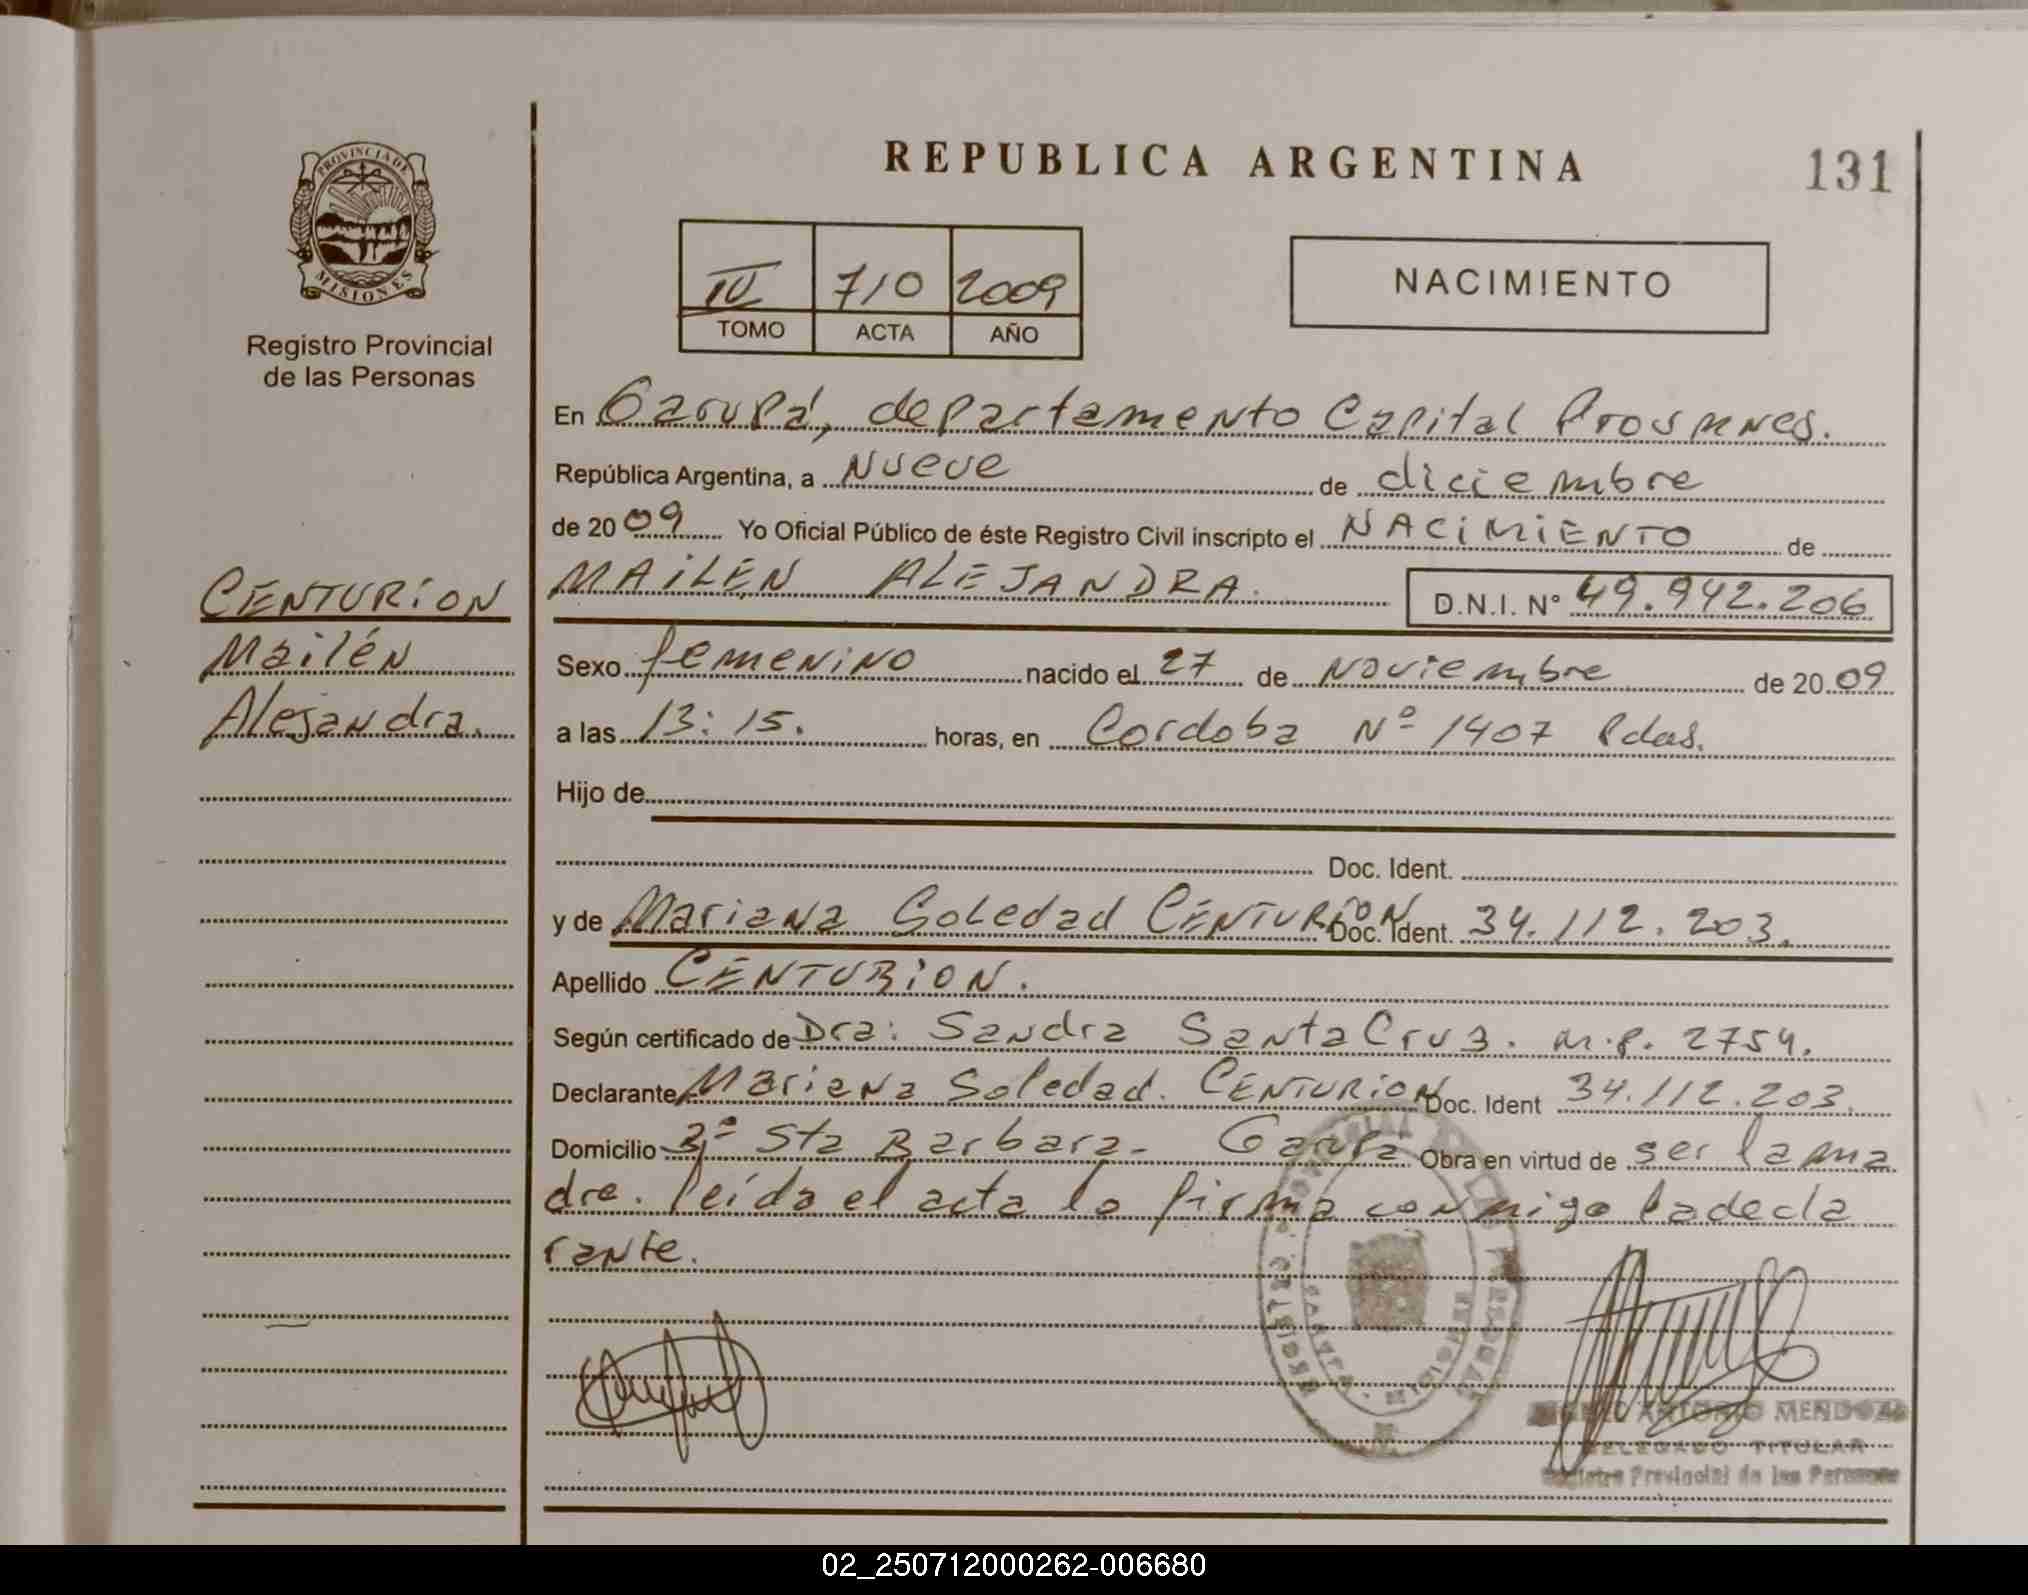 REPUBLICA ARGENTINA
131
PROVINCIA DE
MISIONES
Registro Provincial
de las Personas
IV 710 2009
TOMO ACTA AÑO
NACIMIENTO
En Garupá, departamento Capital Prov Mnes.
República Argentina, a Nueve de diciembre
de 2009 Yo Oficial Público de éste Registro Civil inscripto el NACIMIENTO de
MAILÉN ALEJANDRA. D.N.I. N° 49.942.206
CENTURION
Mailén
Alejandra.
Sexo femenino nacido el 27 de Noviembre de 2009
a las 13:15. horas, en Cordoba Nº 1407 Pdas.
Hijo de
Doc. Ident.
y de Mariana Soledad CENTURION Doc. Ident. 34.112.203.
Apellido CENTURION.
Según certificado de Dra: Sandra Santa Cruz. M.P. 2754.
Declarante Mariana Soledad. CENTURION Doc. Ident 34.112.203.
Domicilio Bº Sta Barbara - Garupa Obra en virtud de ser la ma
dre. leída el acta la firma conmigo la decla
rante.
REGISTRO PROVINCIAL DE LAS PERSONAS
GARUPA MISIONES
ANTONIO MENDOZA
DELEGADO TITULAR
Registro Provincial de las Personas
02_250712000262-006680